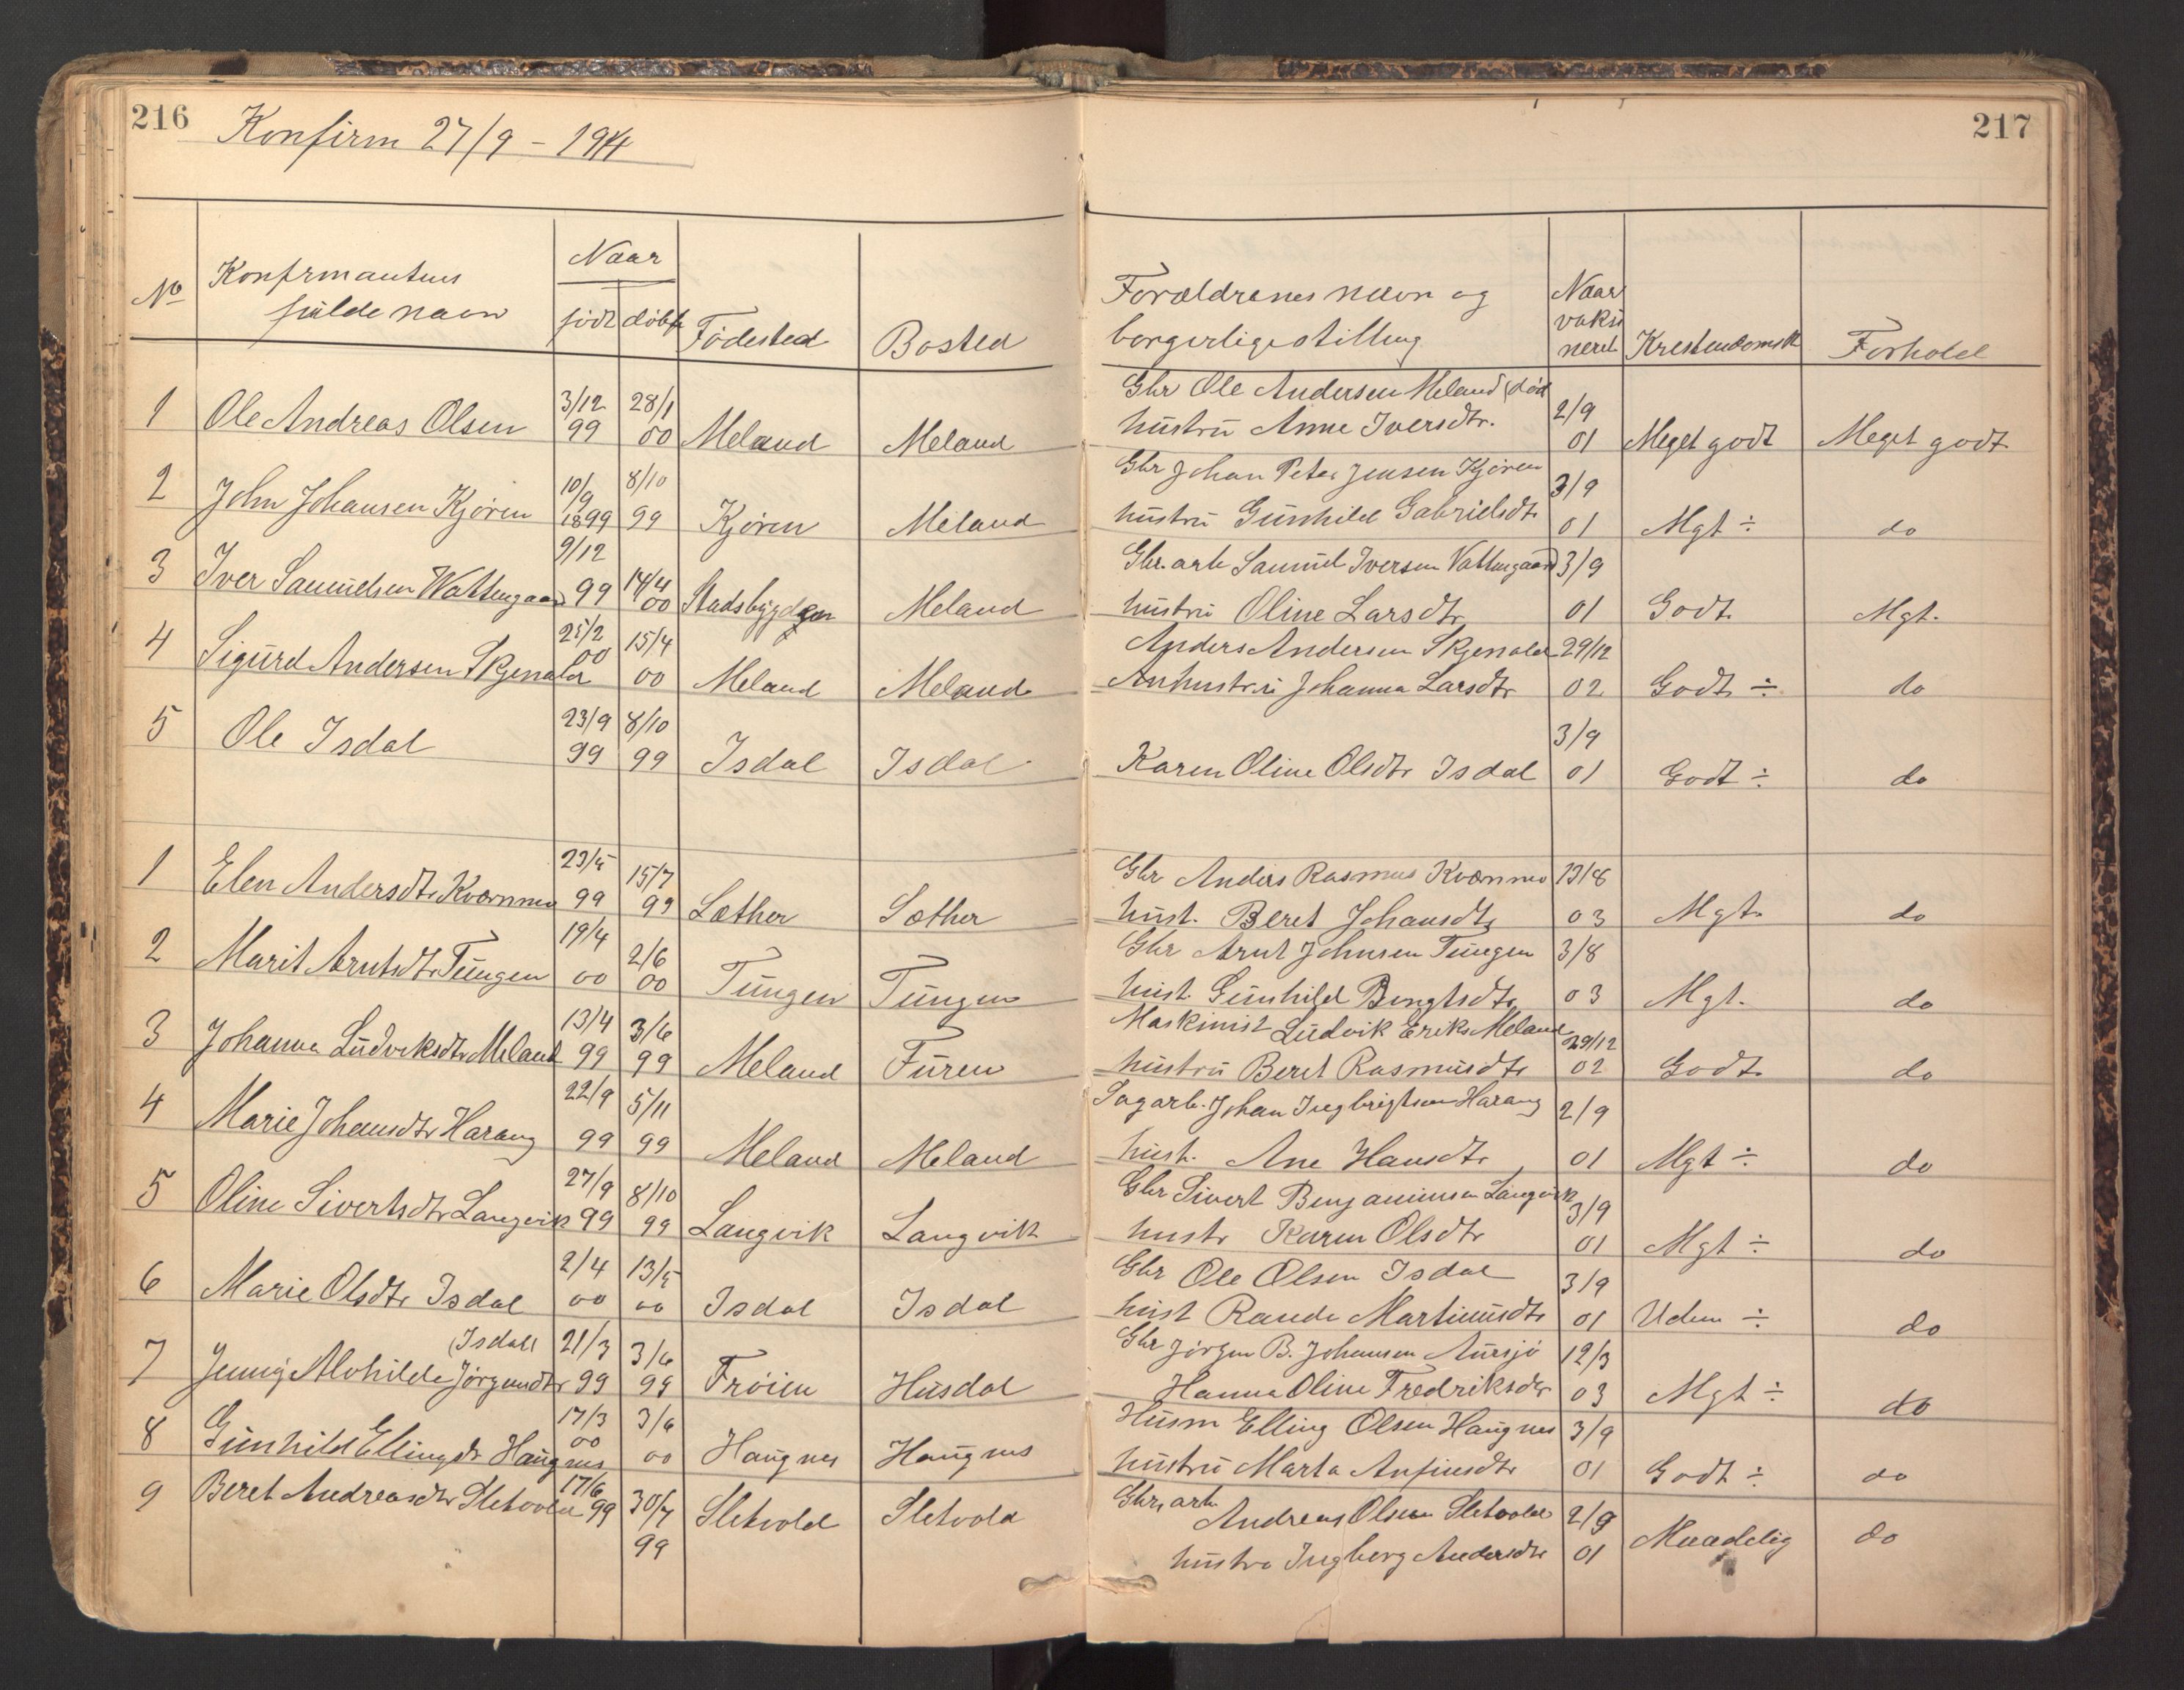 216
Konfirm 27/9 - 1914
217
No
Konfirmantens
fulde navn
Naar
født
døbt
Fødested
Bosted
Forældrenes navn og
borgerlige stilling
Naar
vaksi
neret
Kristendomsk
Forhold
1 Ole Andreas Olsen 3/12 99 28/1 00 Meland Meland
Gbr Ole Andersen Meland (død
hustru Anne Iversdtr. 2/9 01 Meget godt Meget godt
2 John Johansen Kjøren 10/9 1899 8/10 99 Kjøren Meland
Gbr Johan Peter Jensen Kjøren
hustru Gunhild Gabrielsdtr 3/9 01 Mgt ÷ do
3 Iver Samuelsen Wattengaard 9/12 99 14/4 00 Stadsbygden Meland
Gbr. arb Samuel Iversen Vattengaard
hustru Oline Larsdtr 3/9 01 Godt Mgt.
4 Sigurd Andersen Skjenald 25/2 00 15/4 00 Meland Meland
Anders Andersen Skjenald
hustru Johanna Larsdtr 29/12 02 Godt ÷ do
5 Ole Isdal 23/9 99 8/10 99 Isdal Isdal
Karen Oline Olsdtr Isdal 3/9 01 Godt ÷ do
1 Elen Andersdtr Kværnmo 23/5 99 15/7 99 Sæther Sæther
Gbr Anders Rasmus Kvernmo
hust. Beret Johansdtr 13/8 03 Mgt. do
2 Marit Arntsdtr Tungen 19/4 00 2/6 00 Tungen Tungen
Gbr Arnt Johnsen Tungen
hust. Gunhild Bengtsdtr 3/8 03 Mgt. do
3 Johanna Ludviksdtr Meland 13/4 99 3/6 99 Meland Furen
Maskinist Ludvik Eriks Meland
hustru Beret Rasmusdtr 29/12 02 Godt do
4 Marie Johansdtr Harang 22/9 99 5/11 99 Meland Meland
Sagarb. Johan Ingbrigtsen Harang
hust. Ane Hansdtr 2/9 01 Mgt ÷ do
5 Oline Sivertsdtr Langvik 27/9 99 8/10 99 Langvik Langvik
Gbr Sivert Benjaminsen Langvik
hustr Karen Olsdtr 3/9 01 Mgt ÷ do
6 Marie Olsdtr Isdal 2/4 00 13/5 00 Isdal Isdal
Gbr Ole Olsen Isdal
hust Rande Martinusdtr 3/9 01 Uden ÷ do
(Isdal)
7 Jenny Alvhilde Jørgendtr 21/3 99 3/6 99 Frøien Husdal
Gbr Jörgen B. Johansen Aursjø
Hanna Oline Fredriksdtr 12/3 03 Mgt ÷ do
8 Gunhild Ellingsdr Haugnes 17/3 00 3/6 00 Haugnes Haugnes
Husm Elling Olsen Haugnes
hustru Marta Anfinsdtr 3/9 01 Godt ÷ do
9 Beret Andreasdtr Sletvold 17/6 99 30/7 99 Sletvold Sletvold
Gbr, arb. Andreas Olsen Sletvold
hustru Ingberg Andersdtr 2/9 01 Maadelig do